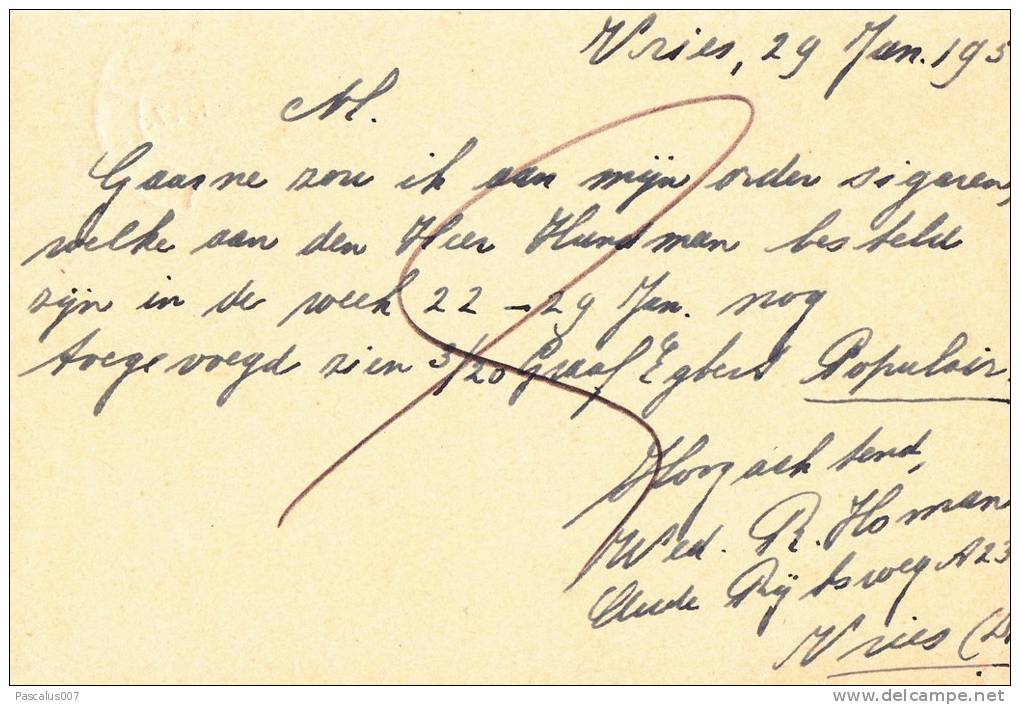 Vries, 29 Jan. 195
M.
Gaarne zou ik aan mijn order sigaren,
welke aan den Heer Hunsman besteld
zijn in de week 22 - 29 Jan. nog
toegevoegd zien 3/20 Graaf Egbert Populair.
Hoogachtend,
Wed. R. Homan
Oude Rijksweg A23
Vries (D
Pascalus007
www.delcampe.net